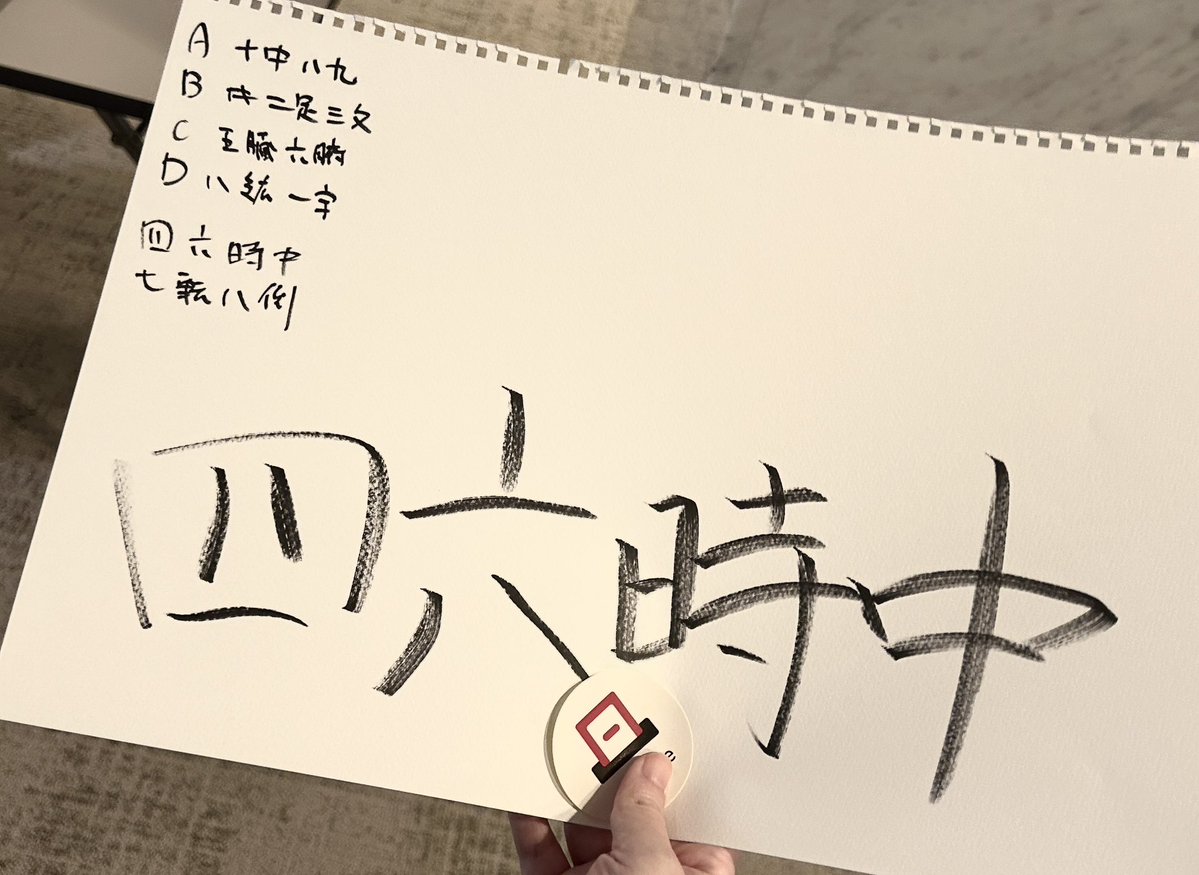 A 十中八九
B 二足三文
C 五臓六腑
D 八紘一宇
四六時中
七転八倒
四六時中